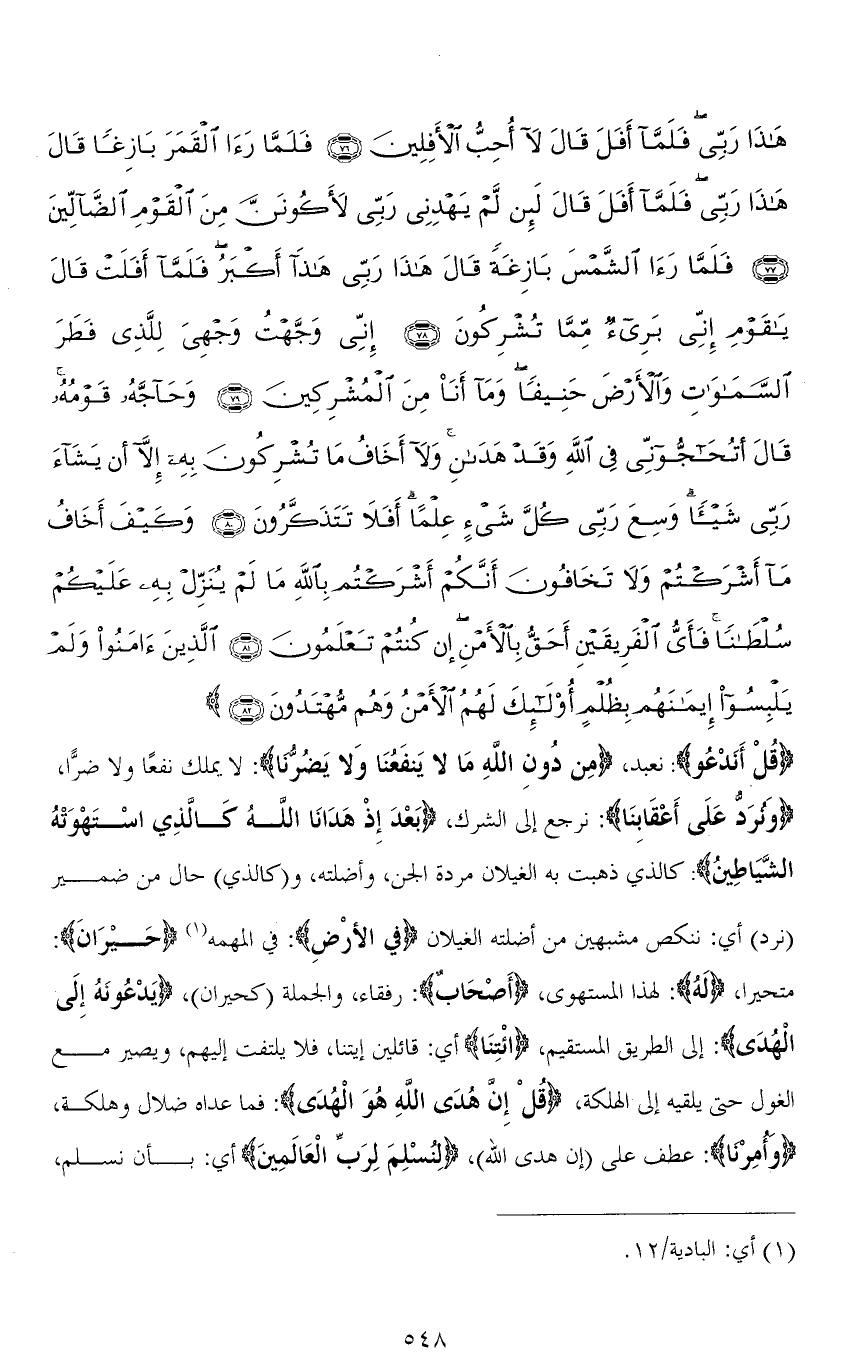 هَٰذَا رَبِّيۖ فَلَمَّآ أَفَلَ قَالَ لَآ أُحِبُّ ٱلۡأٓفِلِينَ ٧٦ فَلَمَّا رَءَا ٱلۡقَمَرَ بَازِغٗا قَالَ
هَٰذَا رَبِّيۖ فَلَمَّآ أَفَلَ قَالَ لَئِن لَّمۡ يَهۡدِنِي رَبِّي لَأَكُونَنَّ مِنَ ٱلۡقَوۡمِ ٱلضَّآلِّينَ
٧٧ فَلَمَّا رَءَا ٱلشَّمۡسَ بَازِغَةٗ قَالَ هَٰذَا رَبِّي هَٰذَآ أَكۡبَرُۖ فَلَمَّآ أَفَلَتۡ قَالَ
يَٰقَوۡمِ إِنِّي بَرِيٓءٞ مِّمَّا تُشۡرِكُونَ ٧٨ إِنِّي وَجَّهۡتُ وَجۡهِيَ لِلَّذِي فَطَرَ
ٱلسَّمَٰوَٰتِ وَٱلۡأَرۡضَ حَنِيفٗاۖ وَمَآ أَنَا۠ مِنَ ٱلۡمُشۡرِكِينَ ٧٩ وَحَآجَّهُۥ قَوۡمُهُۥۚ
قَالَ أَتُحَٰٓجُّوٓنِّي فِي ٱللَّهِ وَقَدۡ هَدَىٰنِۚ وَلَآ أَخَافُ مَا تُشۡرِكُونَ بِهِۦٓ إِلَّآ أَن يَشَآءَ
رَبِّي شَيۡـٔٗاۗ وَسِعَ رَبِّي كُلَّ شَيۡءٍ عِلۡمًاۗ أَفَلَا تَتَذَكَّرُونَ ٨٠ وَكَيۡفَ أَخَافُ
مَآ أَشۡرَكۡتُمۡ وَلَا تَخَافُونَ أَنَّكُمۡ أَشۡرَكۡتُم بِٱللَّهِ مَا لَمۡ يُنَزِّلۡ بِهِۦ عَلَيۡكُمۡ
سُلۡطَٰنٗاۚ فَأَيُّ ٱلۡفَرِيقَيۡنِ أَحَقُّ بِٱلۡأَمۡنِۖ إِن كُنتُمۡ تَعۡلَمُونَ ٨١ ٱلَّذِينَ ءَامَنُواْ وَلَمۡ
يَلۡبِسُوٓاْ إِيمَٰنَهُم بِظُلۡمٍ أُوْلَٰٓئِكَ لَهُمُ ٱلۡأَمۡنُ وَهُم مُّهۡتَدُونَ ٨٢ ﴾
﴿قُلْ أَنَدْعُو﴾: نعبد، ﴿مِن دُونِ اللَّهِ مَا لا يَنفَعُنَا وَلا يَضُرُّنَا﴾: لا يملك نفعًا ولا ضرًّا،
﴿وَنُرَدُّ عَلَى أَعْقَابِنَا﴾: نرجع إلى الشرك، ﴿بَعْدَ إِذْ هَدَانَا اللَّهُ كَالَّذِي اسْتَهْوَتْهُ
الشَّيَاطِينُ﴾: كالذي ذهبت به الغيلان مردة الجن، وأضلته، و(كالذي) حال من ضمير
(نرد) أي: ننكص مشبهين من أضلته الغيلان ﴿فِي الأَرْضِ﴾: في المهمه(١) ﴿حَيْرَانَ﴾:
متحيرا، ﴿لَهُ﴾: لهذا المستهوى، ﴿أَصْحَابٌ﴾: رفقاء، والجملة (كحيران)، ﴿يَدْعُونَهُ إِلَى
الْهُدَى﴾: إلى الطريق المستقيم، ﴿ائْتِنَا﴾ أي: قائلين إيتنا، فلا يلتفت إليهم، ويصير مع
الغول حتى يلقيه إلى الهلكة، ﴿قُلْ إِنَّ هُدَى اللَّهِ هُوَ الْهُدَى﴾: فما عداه ضلال وهلكة،
﴿وَأُمِرْنَا﴾: عطف على (إن هدى الله)، ﴿لِنُسْلِمَ لِرَبِّ الْعَالَمِينَ﴾ أي: بأن نسلم،
(١) أي: البادية/١٢.
٥٤٨